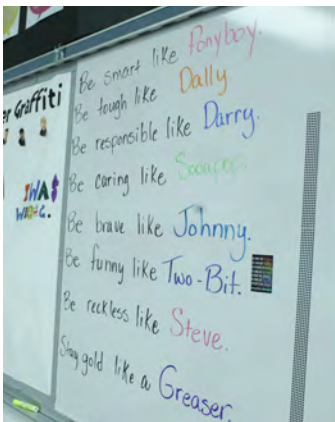 er Graffiti
Be smart like Ponyboy.
Be tough like Dally
Be responsible like Darry.
Be caring like Sodapop.
Be brave like Johnny.
Be funny like Two-Bit.
Be reckless like Steve.
Stay gold like a Greaser.